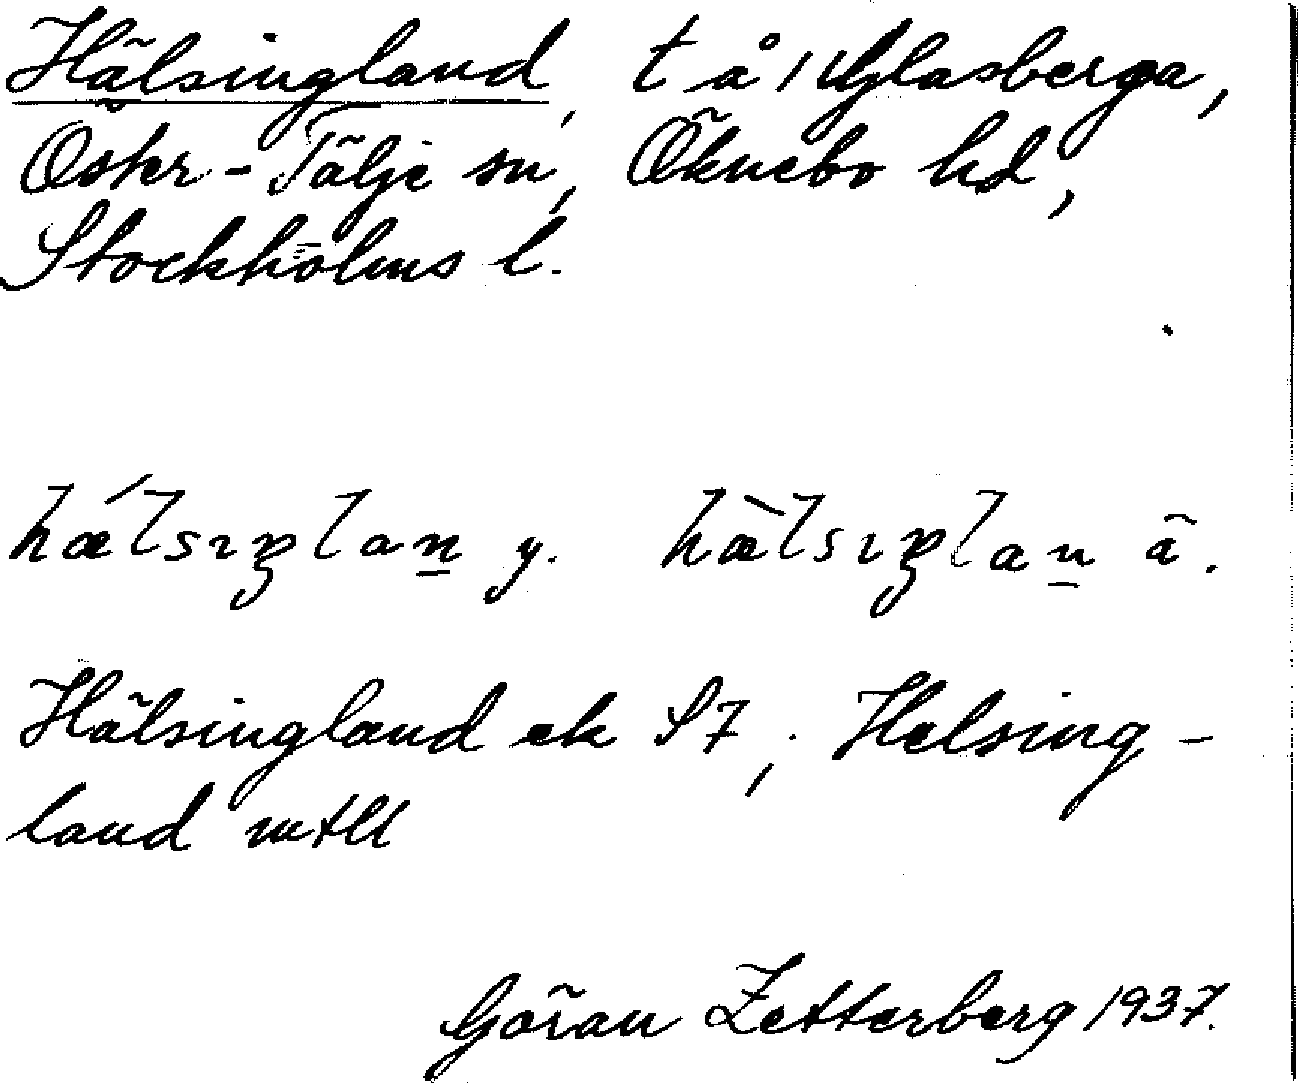 Hälsingland, t å 1 Glasberga,
Öster-Tälje sn, Öknebo hd,
Stockholms l.
hǽlsıŋlaṉ y. hæ̀lsıŋlaṉ ä.
Hälsingland ek S7; Helsing-
land mtll
Göran Zetterberg 1937.